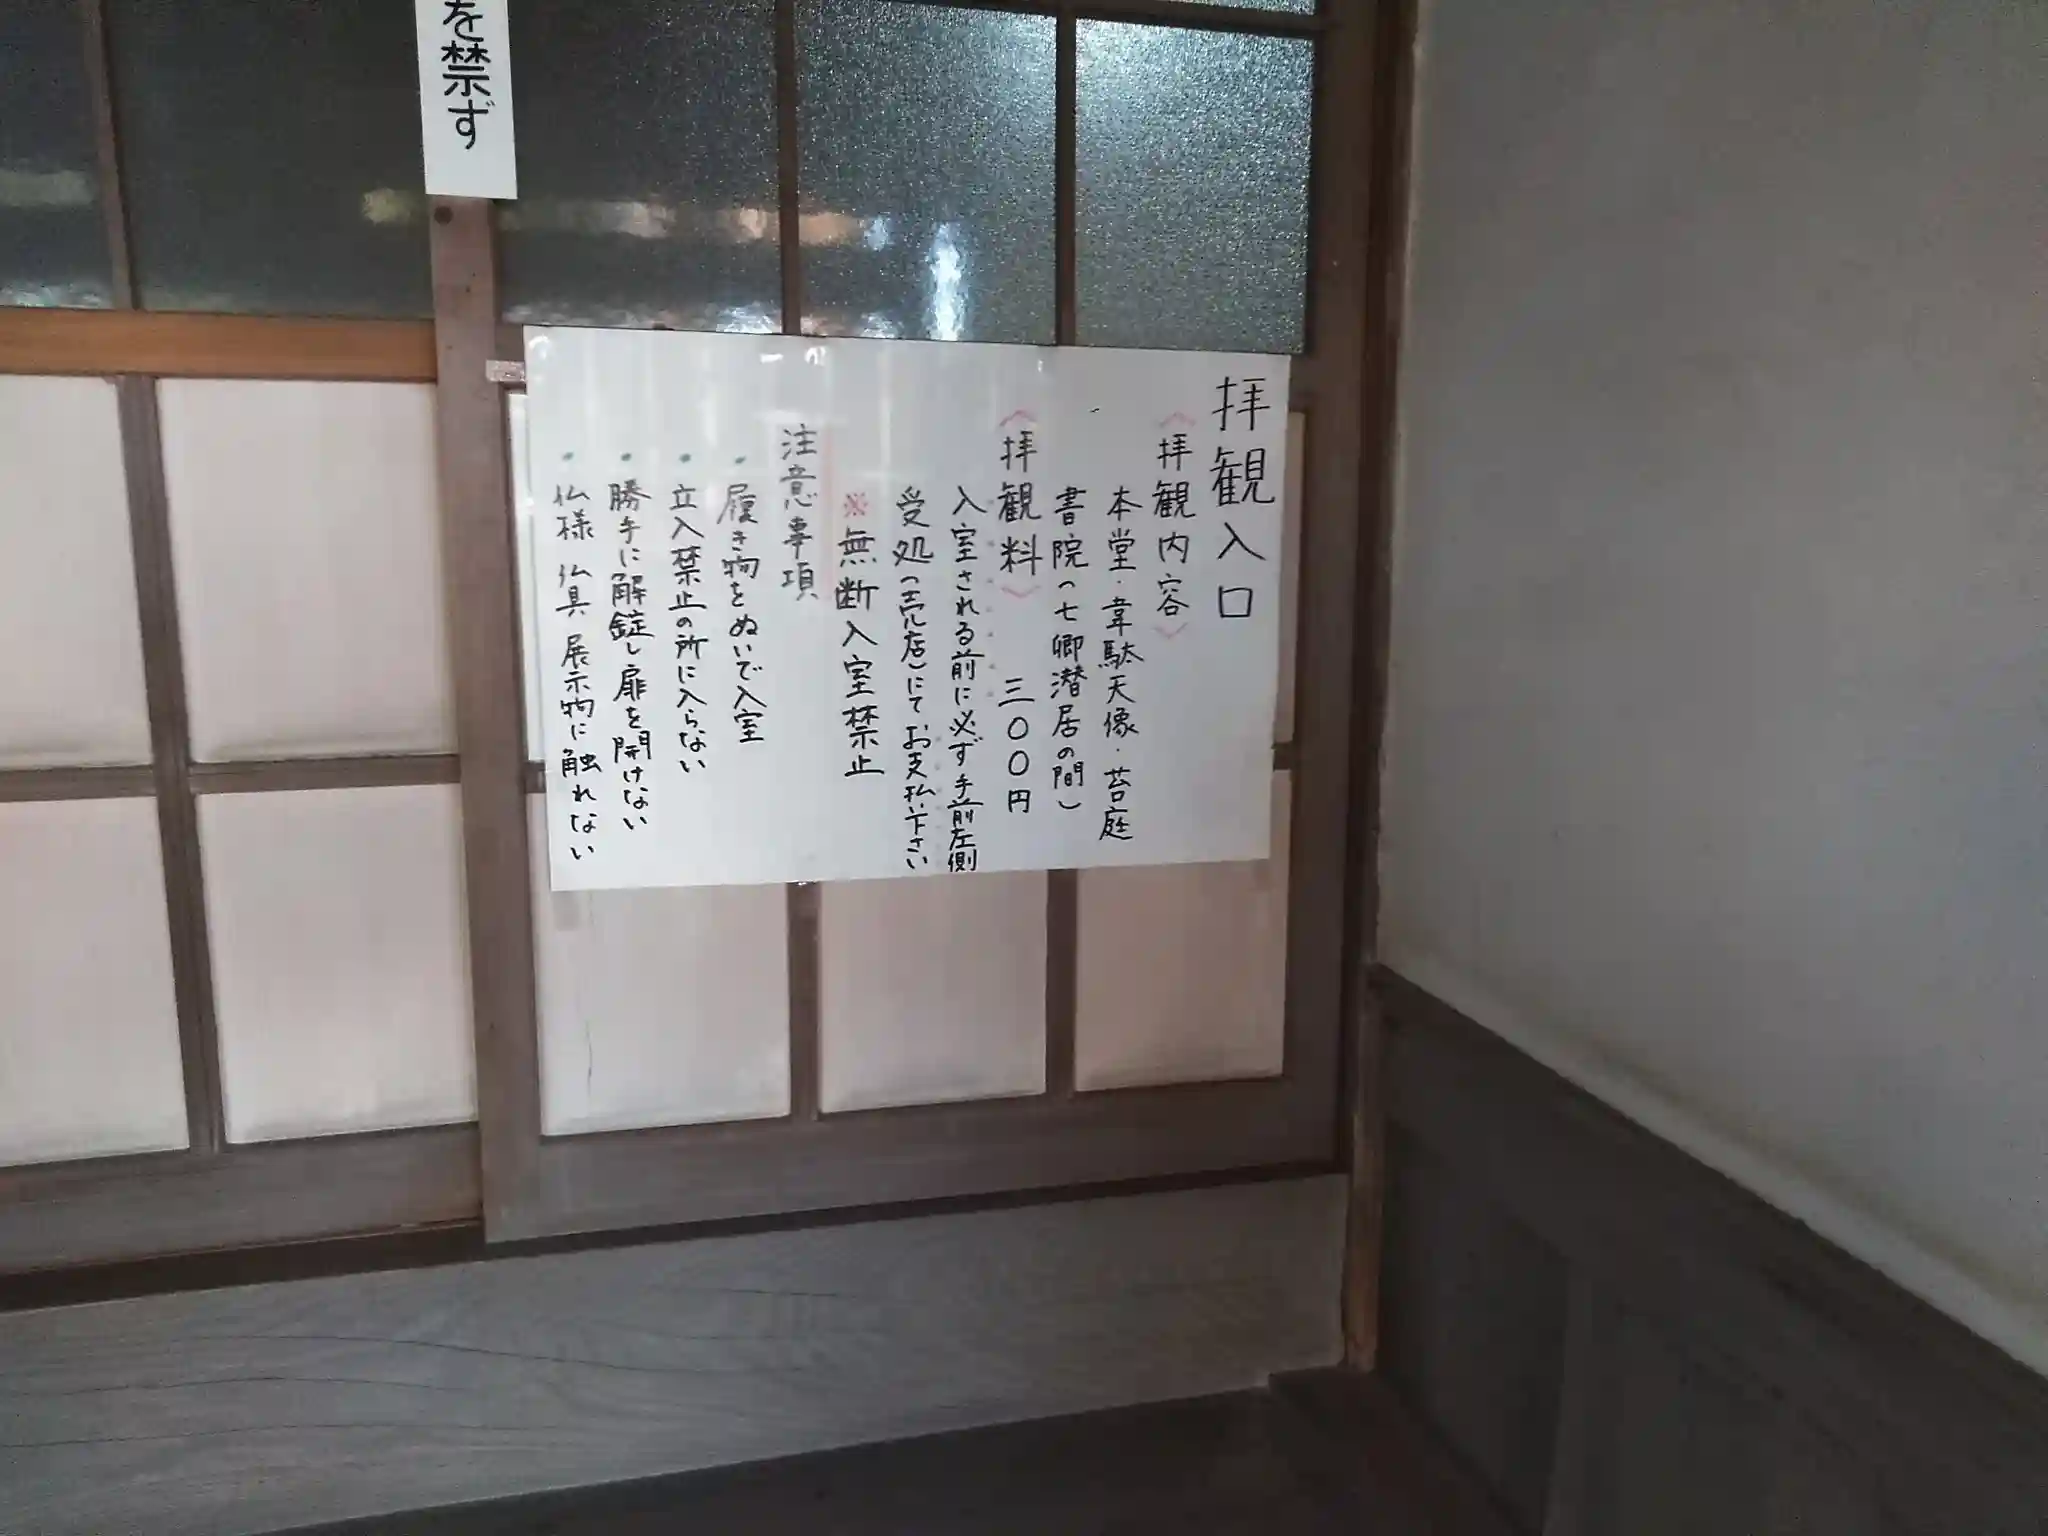 拝観入口
《拝観内容》
本堂・韋駄天像・苔庭
書院(七卿潜居の間)
《拝観料》 三〇〇円
入室される前に必ず手前左側
受処(売店)にてお支払い下さい
※無断入室禁止
注意事項
・履き物をぬいで入室
・立入禁止の所に入らない
・勝手に解錠し扉を開けない
・仏様 仏具 展示物に触れない
を禁ず